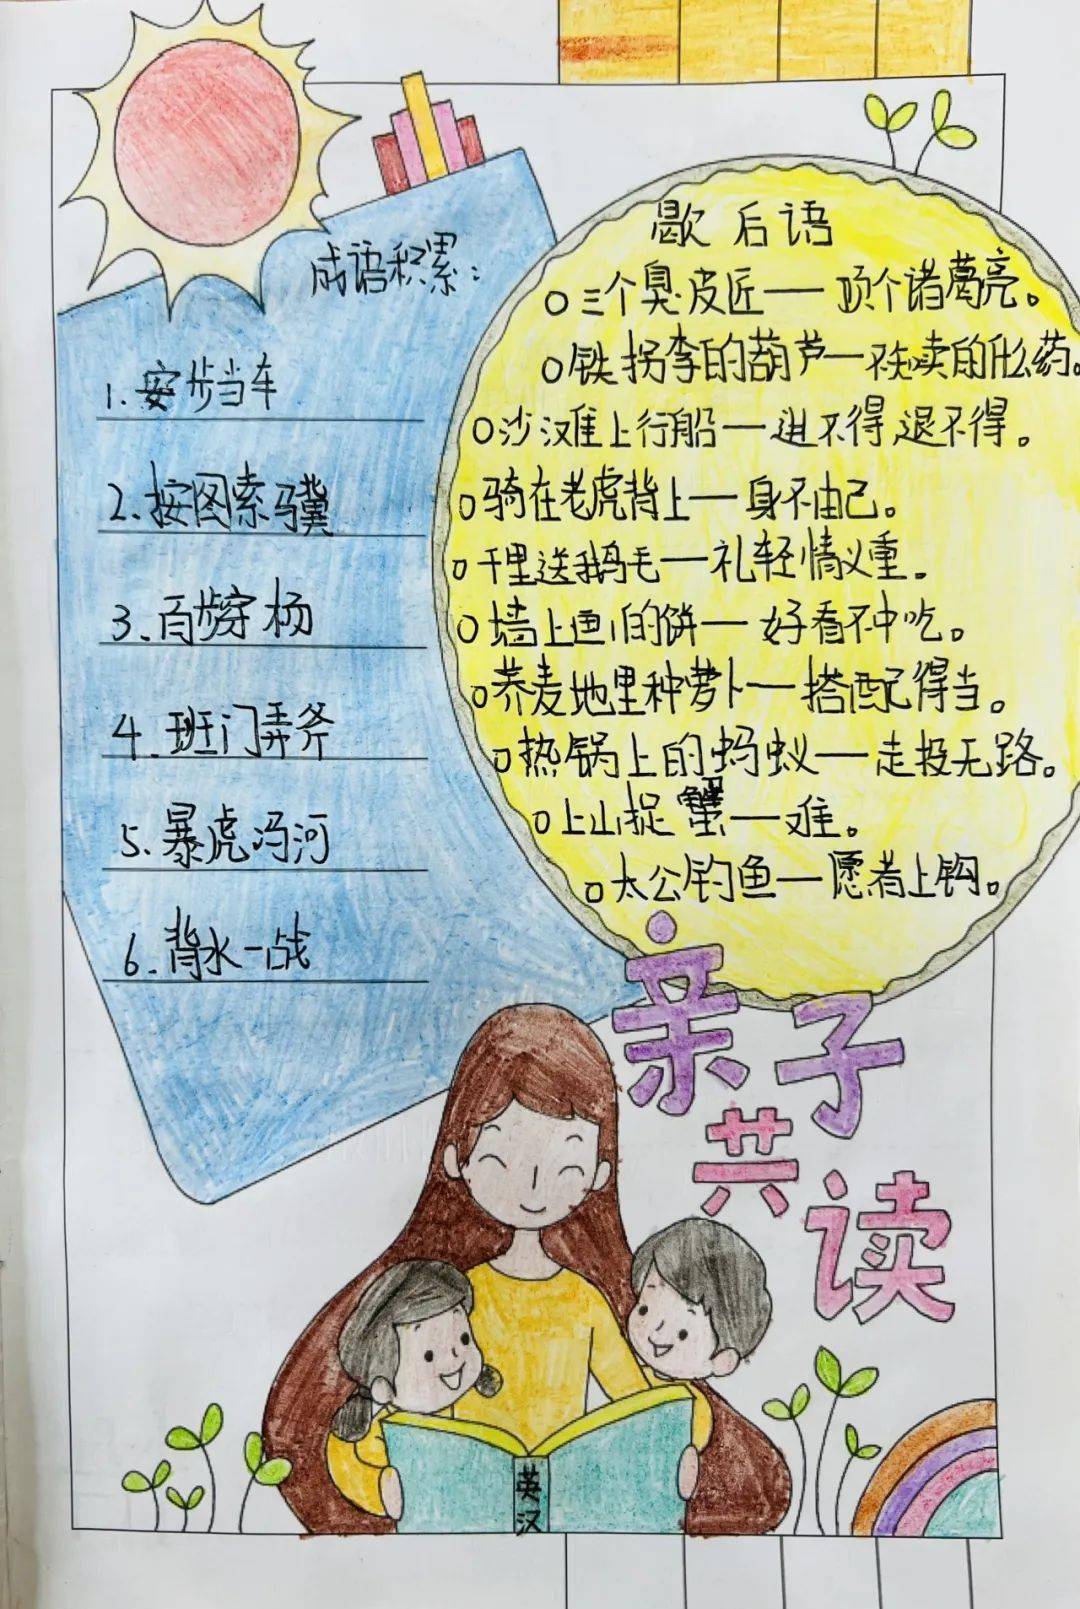 成语积累:
1.安步当车
2.按图索骥
3.百步穿杨
4.班门弄斧
5.暴虎冯河
6.背水一战
歇后语
三个臭皮匠——顶个诸葛亮。
铁拐李的葫芦—不知卖的什么药。
沙滩上行船——进不得退不得。
骑在老虎背上——身不由己。
千里送鹅毛——礼轻情义重。
墙上画的饼——好看不中吃。
荞麦地里种萝卜——搭配得当。
热锅上的蚂蚁——走投无路。
上山捉蟹——难。
太公钓鱼——愿者上钩。
亲子
共读
英汉